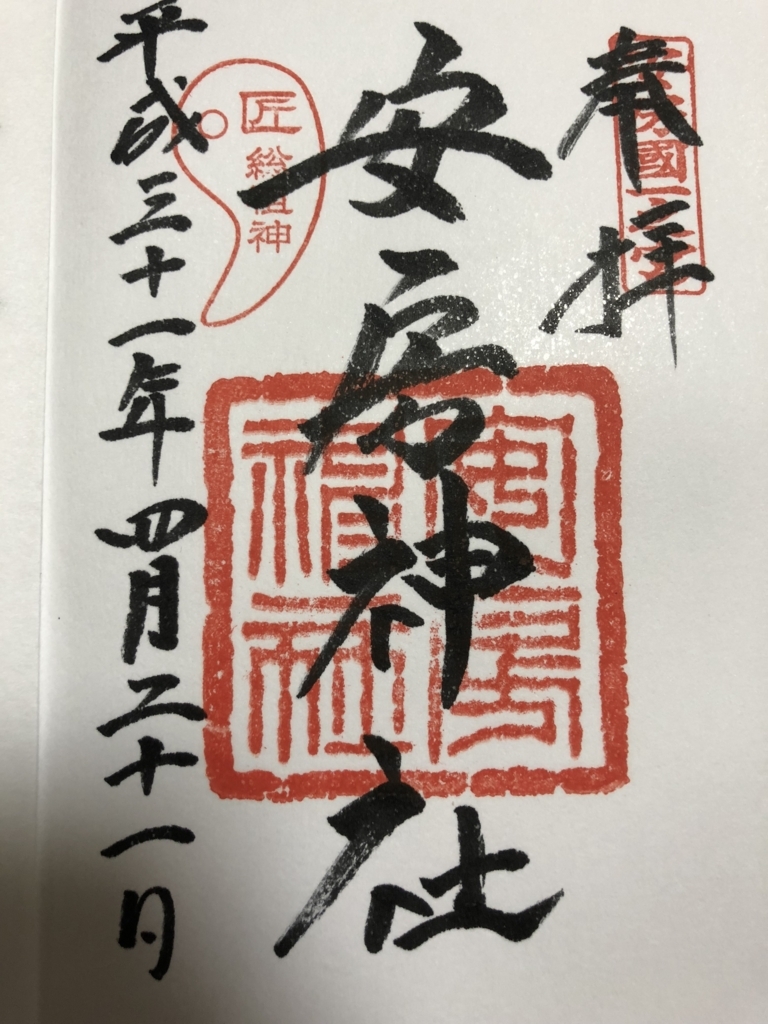 奉拝
安房國一之宮
安房神社
安房神社
匠
総祖神
平成三十一年四月二十一日